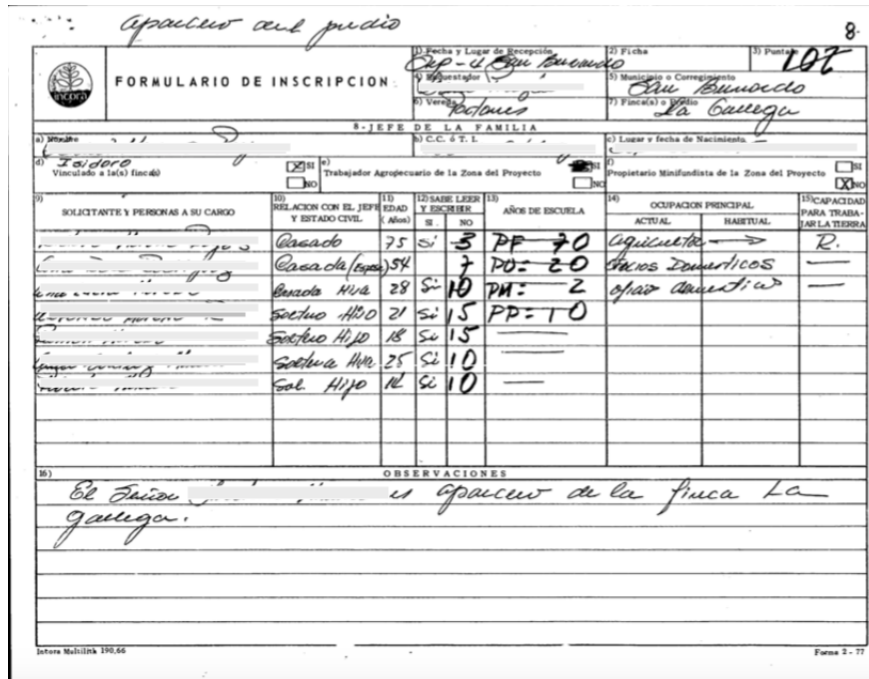 aparcero del predio
8.
incora
FORMULARIO DE INSCRIPCION
1) Fecha y Lugar de Recepción
San Bernardo
2) Ficha
3) Puntaje
107
4) Encuestador
5) Municipio o Corregimiento
San Bernardo
6) Vereda
7) Finca(s) o Predio
La Gallega
8-JEFE DE LA FAMILIA
a) Nombre
b) C.C. ó T. I.
c) Lugar y fecha de Nacimiento
Isidoro
d) Vinculado a la(s) finca(s)
SI
NO
e) Trabajador Agropecuario de la Zona del Proyecto
SI
NO
f) Propietario Minifundista de la Zona del Proyecto
SI
NO
9) SOLICITANTE Y PERSONAS A SU CARGO
10) RELACION CON EL JEFE Y ESTADO CIVIL
11) EDAD (Años)
12) SABE LEER Y ESCRIBIR
SI.
NO
13) AÑOS DE ESCUELA
14) OCUPACION PRINCIPAL
ACTUAL
HABITUAL
15) CAPACIDAD PARA TRABAJAR LA TIERRA
Casado 75 Si 3 PF - 70 agricultor R.
Casada (Esposa) 54 7 PU = 20 oficios Domesticos
Casada Hija 28 Si 10 PM = 2 oficio domestico
Soltero Hijo 21 Si 15 PP = 10
Soltero Hijo 18 Si 15
Soltera Hija 25 Si 10
Sol. Hijo 14 Si 10
16) OBSERVACIONES
El Señor es aparcero de la finca La
gallega.
Intora Multilith 190,66
Forma 2 - 77